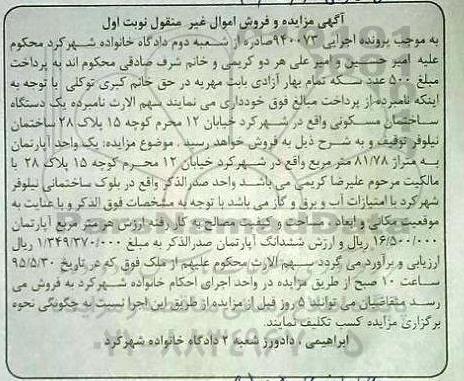 آگهی مزایده و فروش اموال غیر منقول نوبت اول
به موجب پرونده اجرایی ۹۴۰۰۷۳صادره از شعبه دوم دادگاه خانواده شهرکرد محکوم
علیه امیر حسین و امیر علی هر دو کریمی و خانم شرف صادقی محکوم اند به پرداخت
مبلغ ۵۰۰ عدد سکه تمام بهار آزادی بابت مهریه در حق خانم کبری توکلی با توجه به
اینکه نامبرده از پرداخت مبالغ فوق خودداری می نمایند سهم الارث نامبرده یک دستگاه
ساختمان مسکونی واقع در شهرکرد خیابان ۱۲ محرم کوچه ۱۵ پلاک ۲۸ ساختمان
نیلوفر توقیف و به شرح ذیل به فروش خواهد رسید . موضوع مزایده: یک واحد آپارتمان
به متراژ ۸۱/۷۸ متر مربع واقع در شهرکرد خیابان ۱۲ محرم کوچه ۱۵ پلاک ۲۸ با
مالکیت مرحوم علیرضا کریمی می باشد واحد صدرالذکر واقع در بلوک ساختمانی نیلوفر
شهرکرد با امتیازات آب و برق و گاز می باشد با توجه به مشخصات فوق الذکر و با عنایت به
موقعیت مکانی و ابعاد ، مساحت و کیفیت مصالح به کار رفته ارزش هر متر مربع آپارتمان
۱۶/۵۰۰/۰۰۰ ریال و ارزش ششدانگ آپارتمان صدرالذکر به مبلغ ۱/۳۴۹/۳۷۰/۰۰۰ ریال
ارزیابی و برآورد می گردد سهم الارث محکوم علیهم از ملک فوق که در تاریخ ۹۵/۵/۳۰
ساعت ۱۰ صبح از طریق مزایده در واحد اجرای احکام خانواده شهرکرد به فروش می
رسد متقاضیان می توانند ۵ روز قبل از مزایده از طریق این اجرا نسبت به چگونگی نحوه
برگزاری مزایده کسب تکلیف نمایند.
ابراهیمی ، دادورز شعبه ۲ دادگاه خانواده شهرکرد